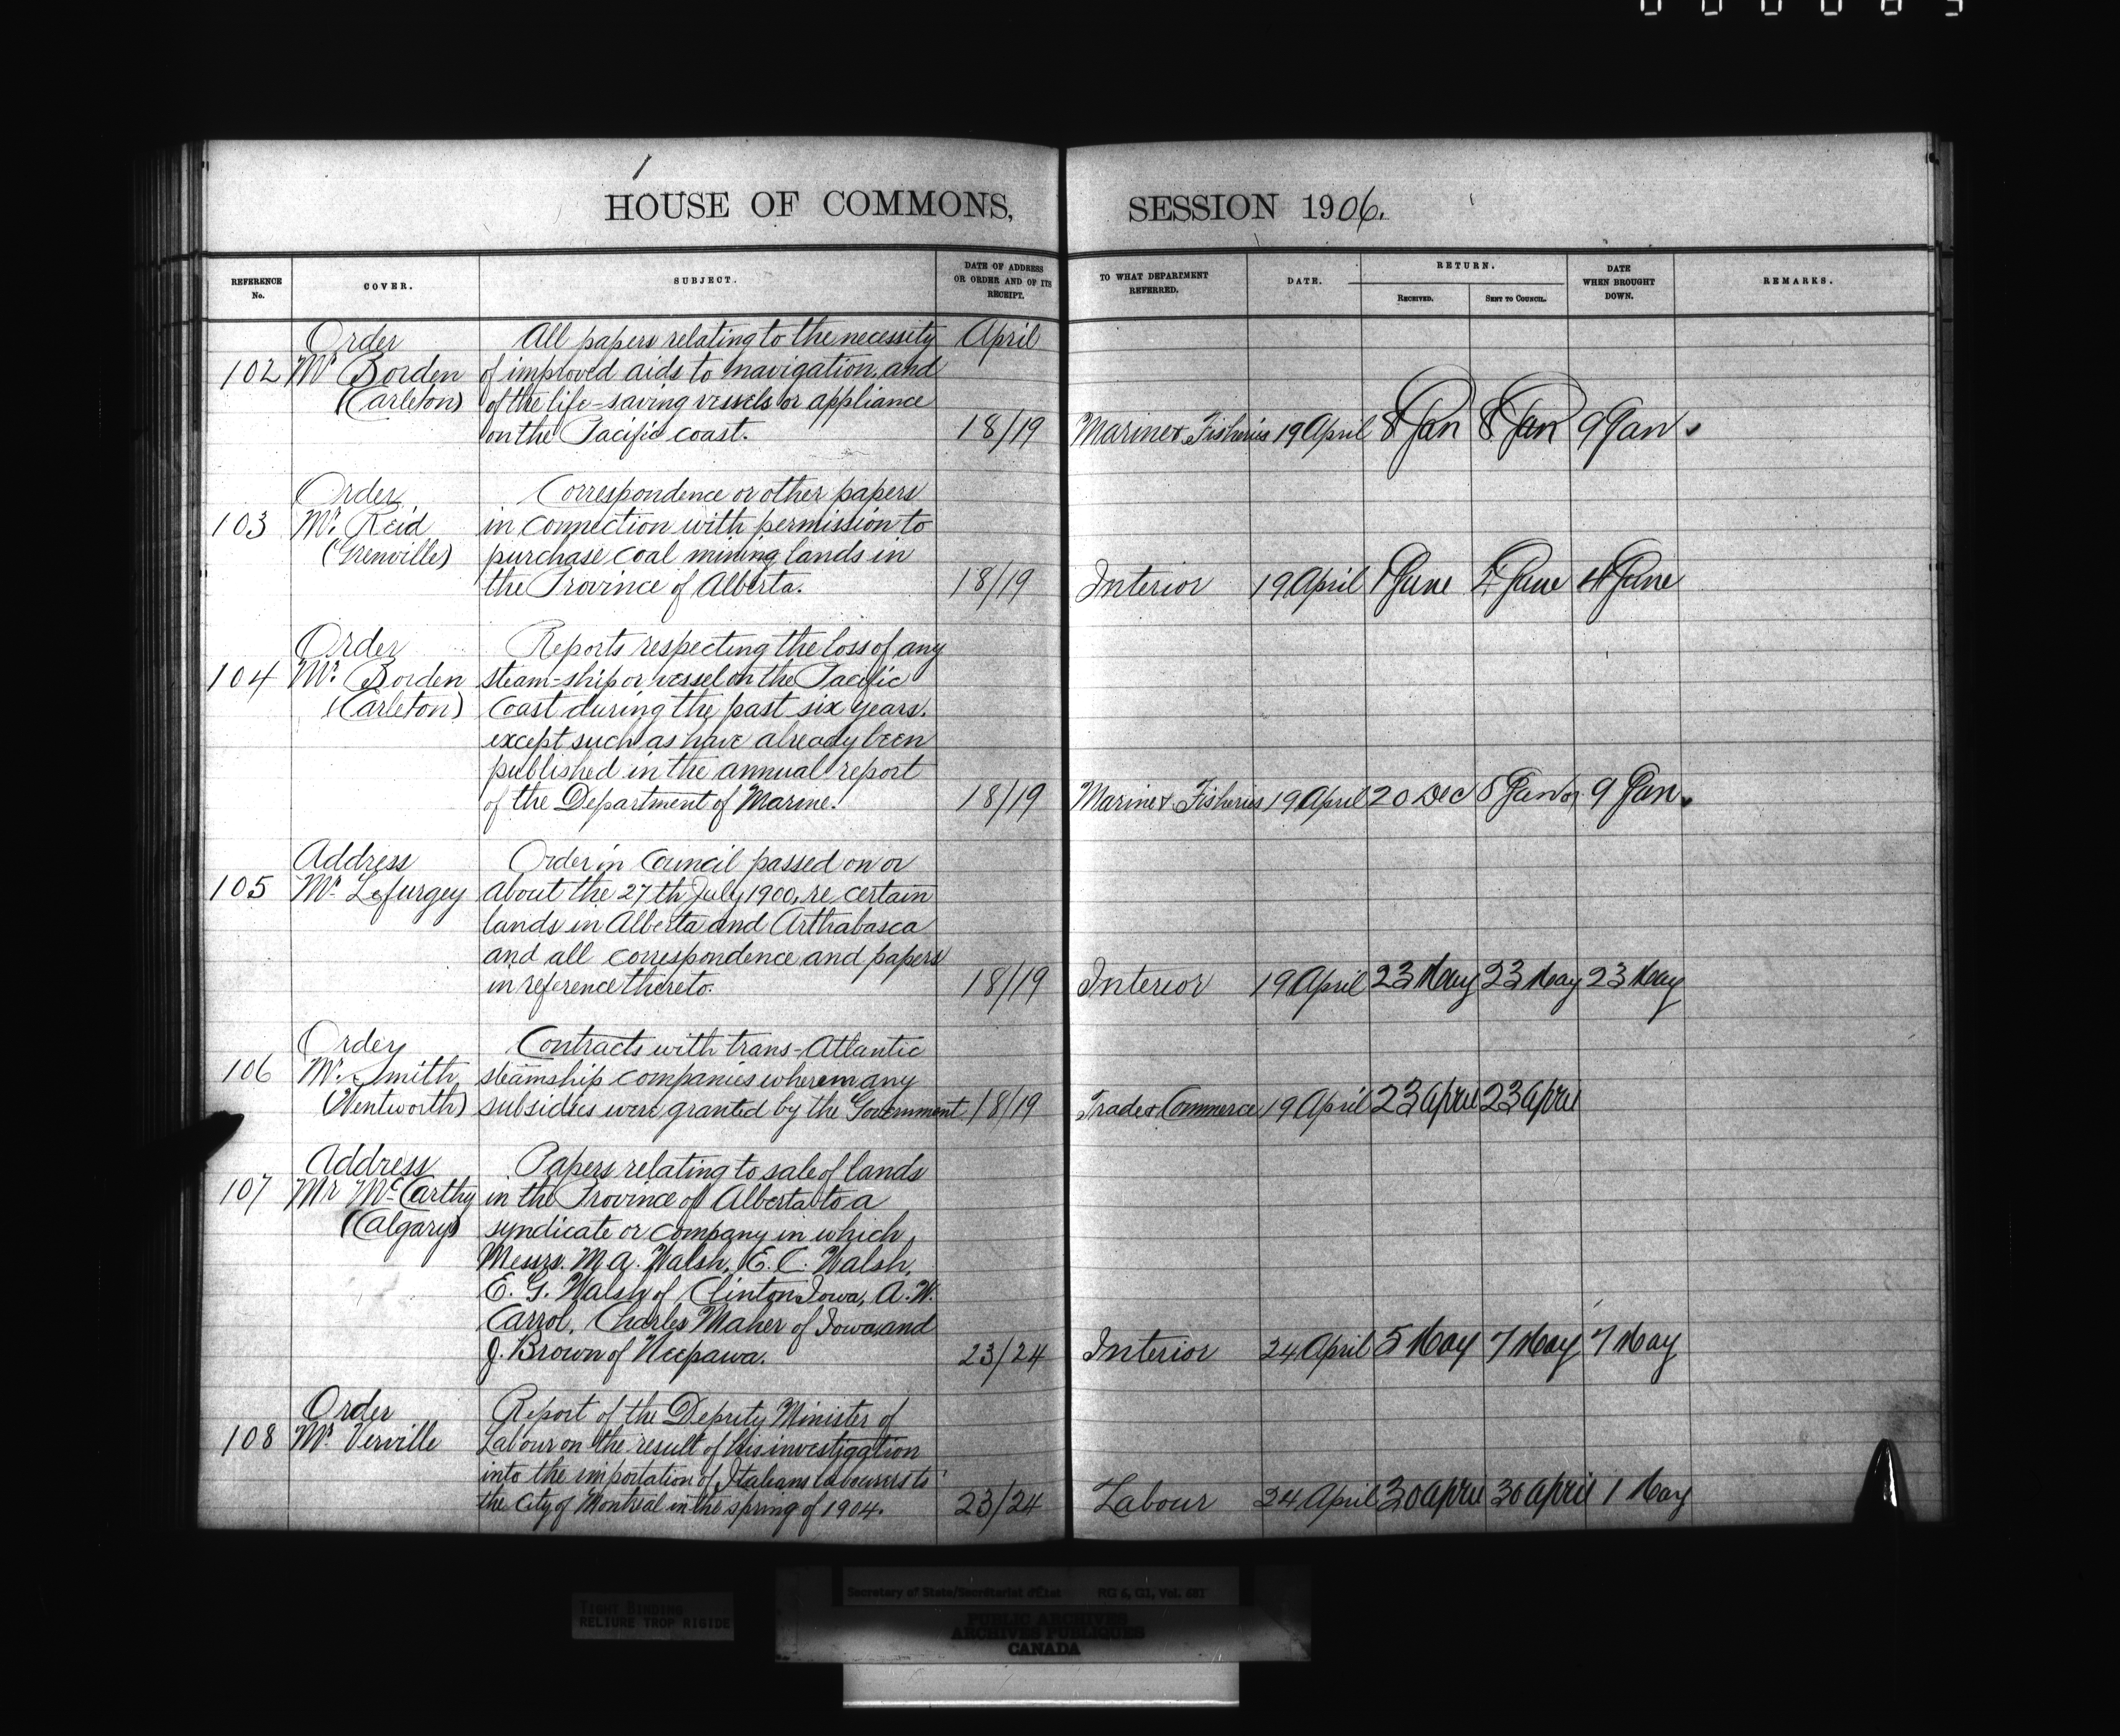 HOUSE OF COMMONS, SESSION 1906.
REFERENCE No. COVER. SUBJECT. DATE OF ADDRESS OR ORDER AND OF ITS RECEIPT. TO WHAT DEPARTMENT REFERRED. DATE. RETURN. RECEIVED. SENT TO COUNCIL. DATE WHEN BROUGHT DOWN. REMARKS.
Order All papers relating to the necessity April
102 Mr Borden of improved aids to navigation and
(Carleton) of the life-saving vessels or appliance
on the Pacific coast. 18/19 Marine & Fisheries 19 April 8 Jan 8 Jan 9 Jan.
Order Correspondence or other papers
103 Mr. Reid in connection with permission to
(Grenville) purchase coal mining lands in
the Province of Alberta. 18/19 Interior 19 April 1 June 4 June 4 June
Order Reports respecting the loss of any
104 Mr. Borden steam-ship or vessel on the Pacific
(Carleton) Coast during the past six years.
except such as have already been
published in the annual report
of the Department of Marine. 18/19 Marine & Fisheries 19 April 20 Dec 8 Jan 07 9 Jan.
Address Order in Council passed on or
105 Mr. Lefurgey about the 27th July 1900, re certain
lands in Alberta and Arthabasca
and all correspondence and papers
in reference thereto. 18/19 Interior 19 April 23 May 23 May 23 May
Order Contracts with trans-Atlantic
106 Mr. Smith steamship companies wherein any
(Wentworth) subsidies were granted by the Government 18/19 Trade & Commerce 19 April 23 April 23 April
Address Papers relating to sale of lands
107 Mr McCarthy in the Province of Alberta to a
(Calgary) syndicate or company in which
Messrs. M A. Walsh, E. C. Walsh,
E. G. Walsh of Clinton Iowa, A. W.
Carrol, Charles Maher of Iowa, and
J. Brown of Neepawa. 23/24 Interior 24 April 5 May 7 May 7 May
Order Report of the Deputy Minister of
108 Mr. Verville Labour on the result of his investigation
into the importation of Italians labourers to
the City of Montreal in the spring of 1904. 23/24 Labour 24 April 30 April 30 April 1 May
Secretary of State/Secrétariat d'État RG 6, G1, Vol. 681
TIGHT BINDING
RELIURE TROP RIGIDE
PUBLIC ARCHIVES
ARCHIVES PUBLIQUES
CANADA